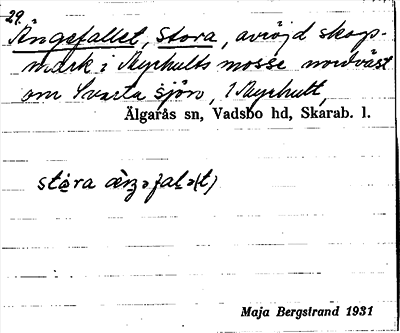 29.
Ängafallet, Stora, avröjd skogs-
mark i Nyrhults mosse nordväst
om Svarta sjön, 1 Nyrhult,
Älgarås sn, Vadsbo hd, Skarab. l.
Maja Bergstrand 1931